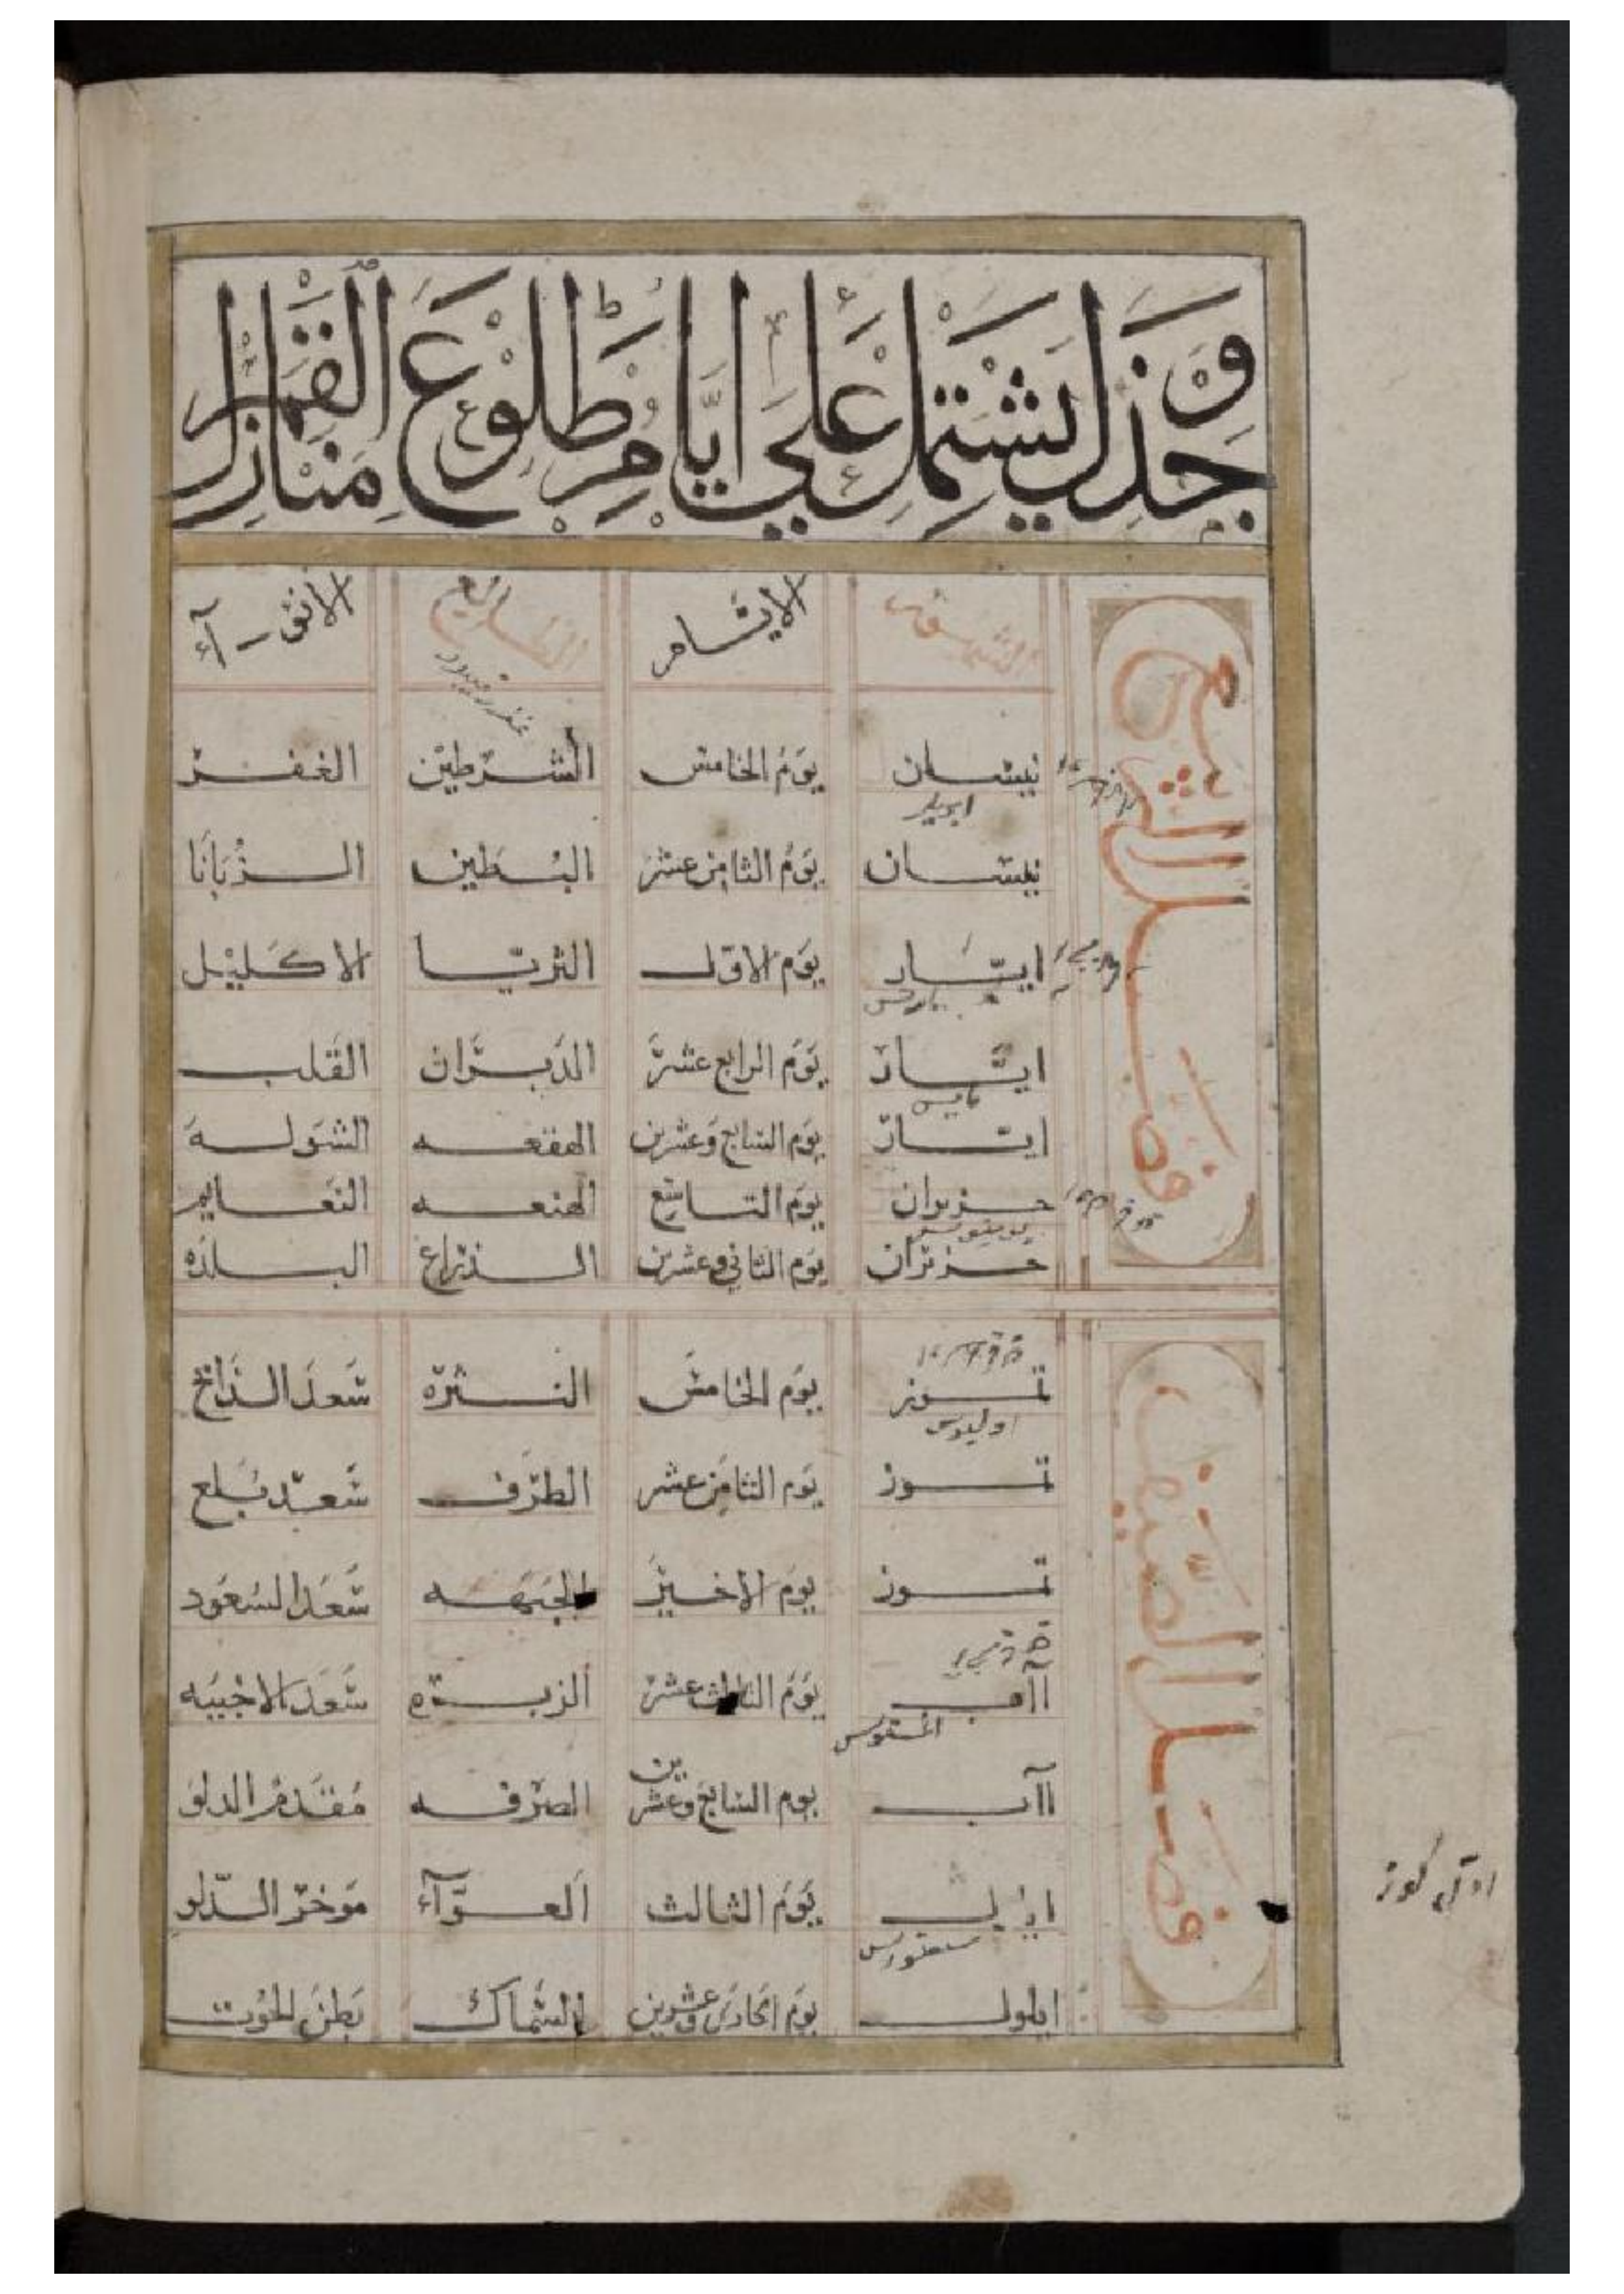 جدول يشتمل على ايام مطلوع منازل القمر
فصل الربيع
الشهور الايام الطالع الانواء
نيسان يوم الخامس الشرطين الغفر
ابريل
نيسان يوم الثامن عشر البطين الزبانا
ايار يوم الاول الثريا الاكليل
مارس
ايار يوم الرابع عشر الدبران القلب
مايس
ايار يوم السابع وعشرين الهقعه الشوله
حزيران يوم التاسع الهنعه النعايم
حزيران يوم الثاني وعشرين الذراع البلده
فصل الصيف
تموز يوم الخامس النثره سعد الذابح
اوليوس
تموز يوم الثامن عشر الطرف سعد بلع
تموز يوم الاخير الجبهه سعد السعود
اآب يوم الثالث عشر الزبره سعد الاخبيه
اغستوس
اآب يوم السابع وعشرين الصرفه مقدم الدلو
ايلول يوم الثالث العوآء موخر الدلو
ايلول يوم الحادي وعشرين السماك بطن الحوت
اول كوز